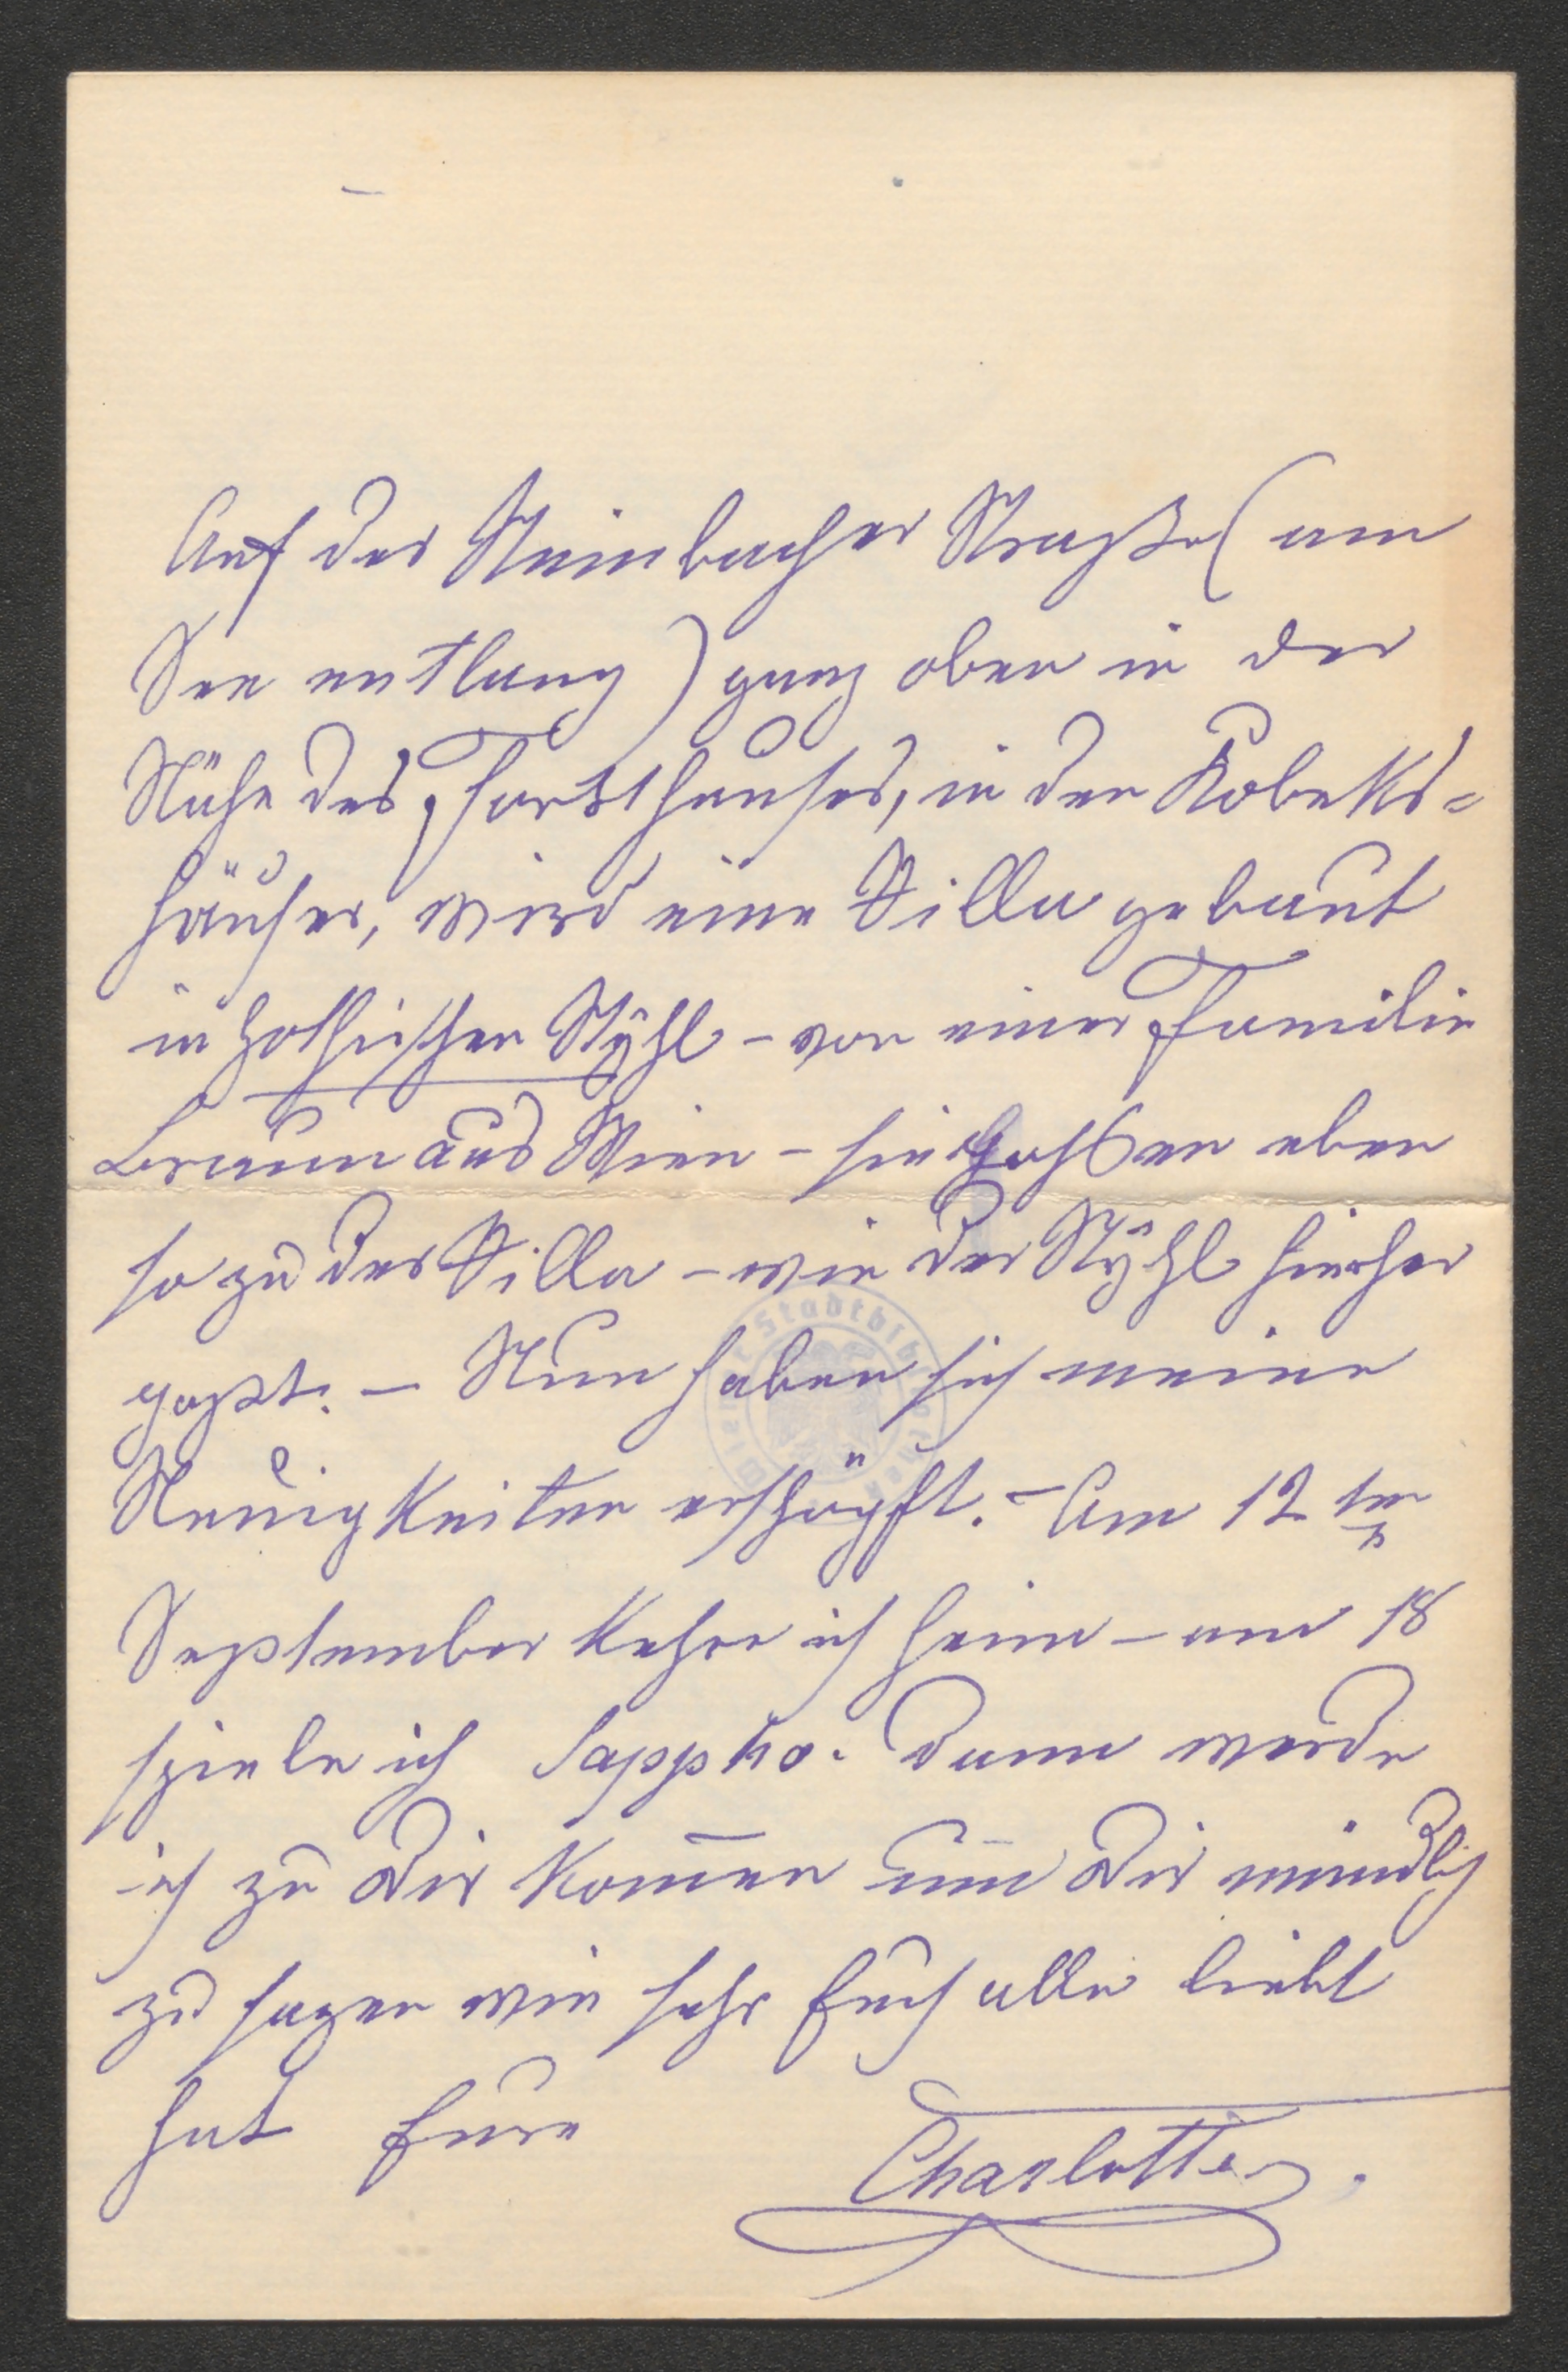 Auf der Steinbacher Straße (am
See entlang) ganz oben in der
Nähe des Forsthauses, in den Kobeks-
häuser, wird eine Villa gebaut
in gothischen Styhl – von einer Familie
Braun aus Wien – sie paßen eben
so zu der Villa – wie der Styhl hierher
paßt. – Nun haben sich meine
Neuigkeiten erschöpft. – Am 12ten
September kehre ich heim – am 18
spiele ich Sappho. Dann werde
ich zu Dir kom̄en um Dir mündlich
zu sagen wie sehr Euch alle liebt
hat Eure
Charlotte.